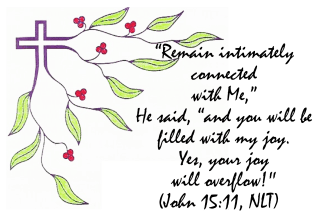 “Remain intimately
connected
with Me,”
He said, “and you will be
filled with my joy.
Yes, your joy
will overflow!”
(John 15:11, NLT)